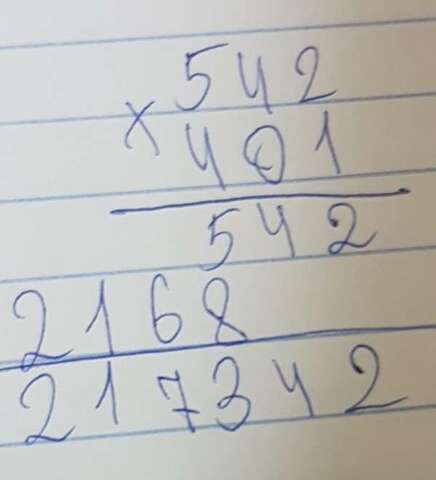 542
× 401
542
2168
217342